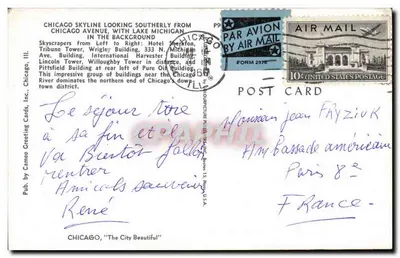 CHICAGO SKYLINE LOOKING SOUTHERLY FROM
CHICAGO AVENUE, WITH LAKE MICHIGAN
IN THE BACKGROUND
Skyscrapers from Left to Right: Hotel
Tribune Tower, Wrigley Building, 333 N. Michigan
Ave. Building, International Harvester Building,
Lincoln Tower, Willoughby Tower in distance, and
Pittsfield Building at rear left of Pure Oil Building.
This impressive group of buildings near the Chicago
River dominates the northern end of Chicago's down-
town district.
Pub. by Cameo Greeting Cards, Inc., Chicago, Ill.
CHICAGO
ILL
PAR AVION
BY AIR MAIL
FORM 2978
AIR MAIL
10¢ UNITED STATES POSTAGE
POST CARD
Le séjour tire
à sa fin et il
va Bientôt falloir
rentrer
Amicals souvenirs
René
Monsieur Jean
Ambassade américaine
Paris 8e
France
CHICAGO, "The City Beautiful"